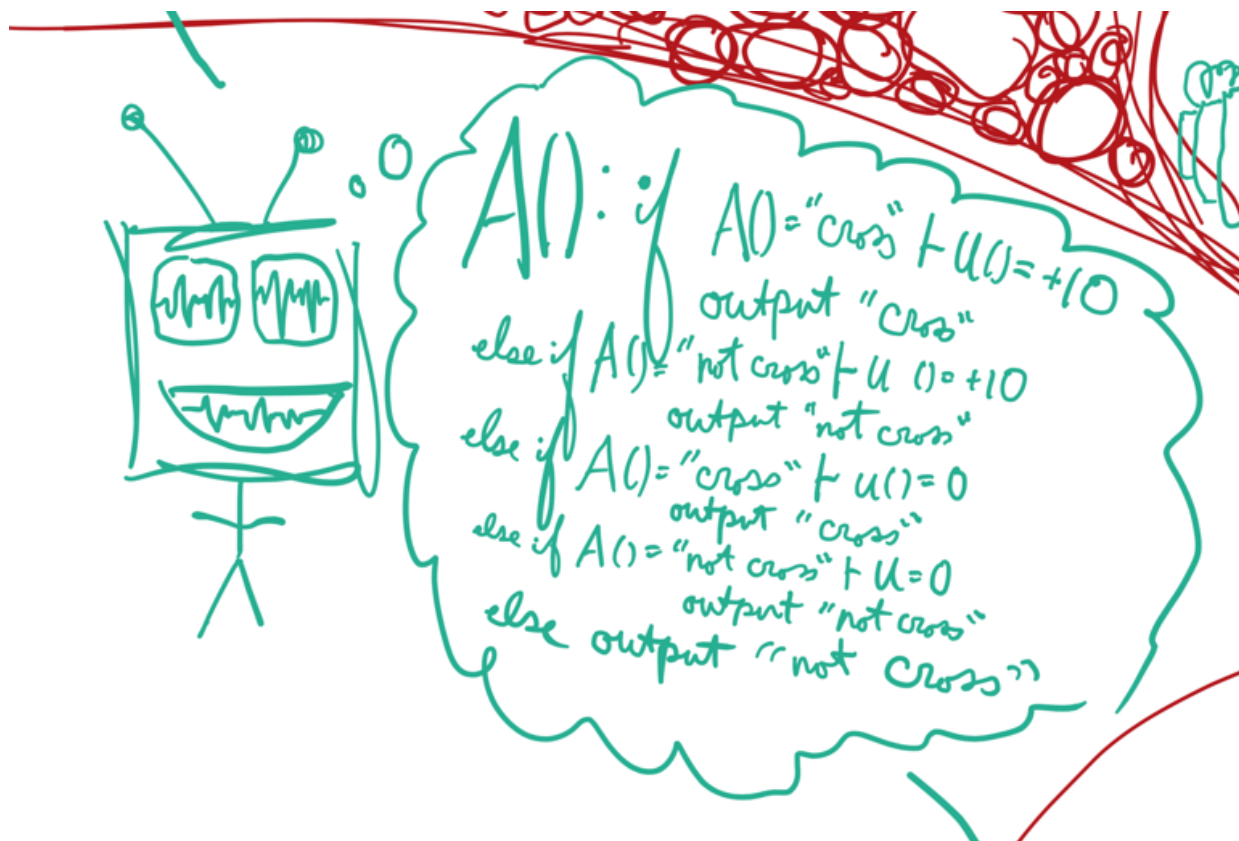 A(): if
A()="cross" ⊢ U()=+10
output "cross"
else if A()="not cross" ⊢ U ()=+10
output "not cross"
else if A()="cross" ⊢ U()=0
output "cross"
else if A()="not cross" ⊢ U=0
output "not cross"
else output "not cross"